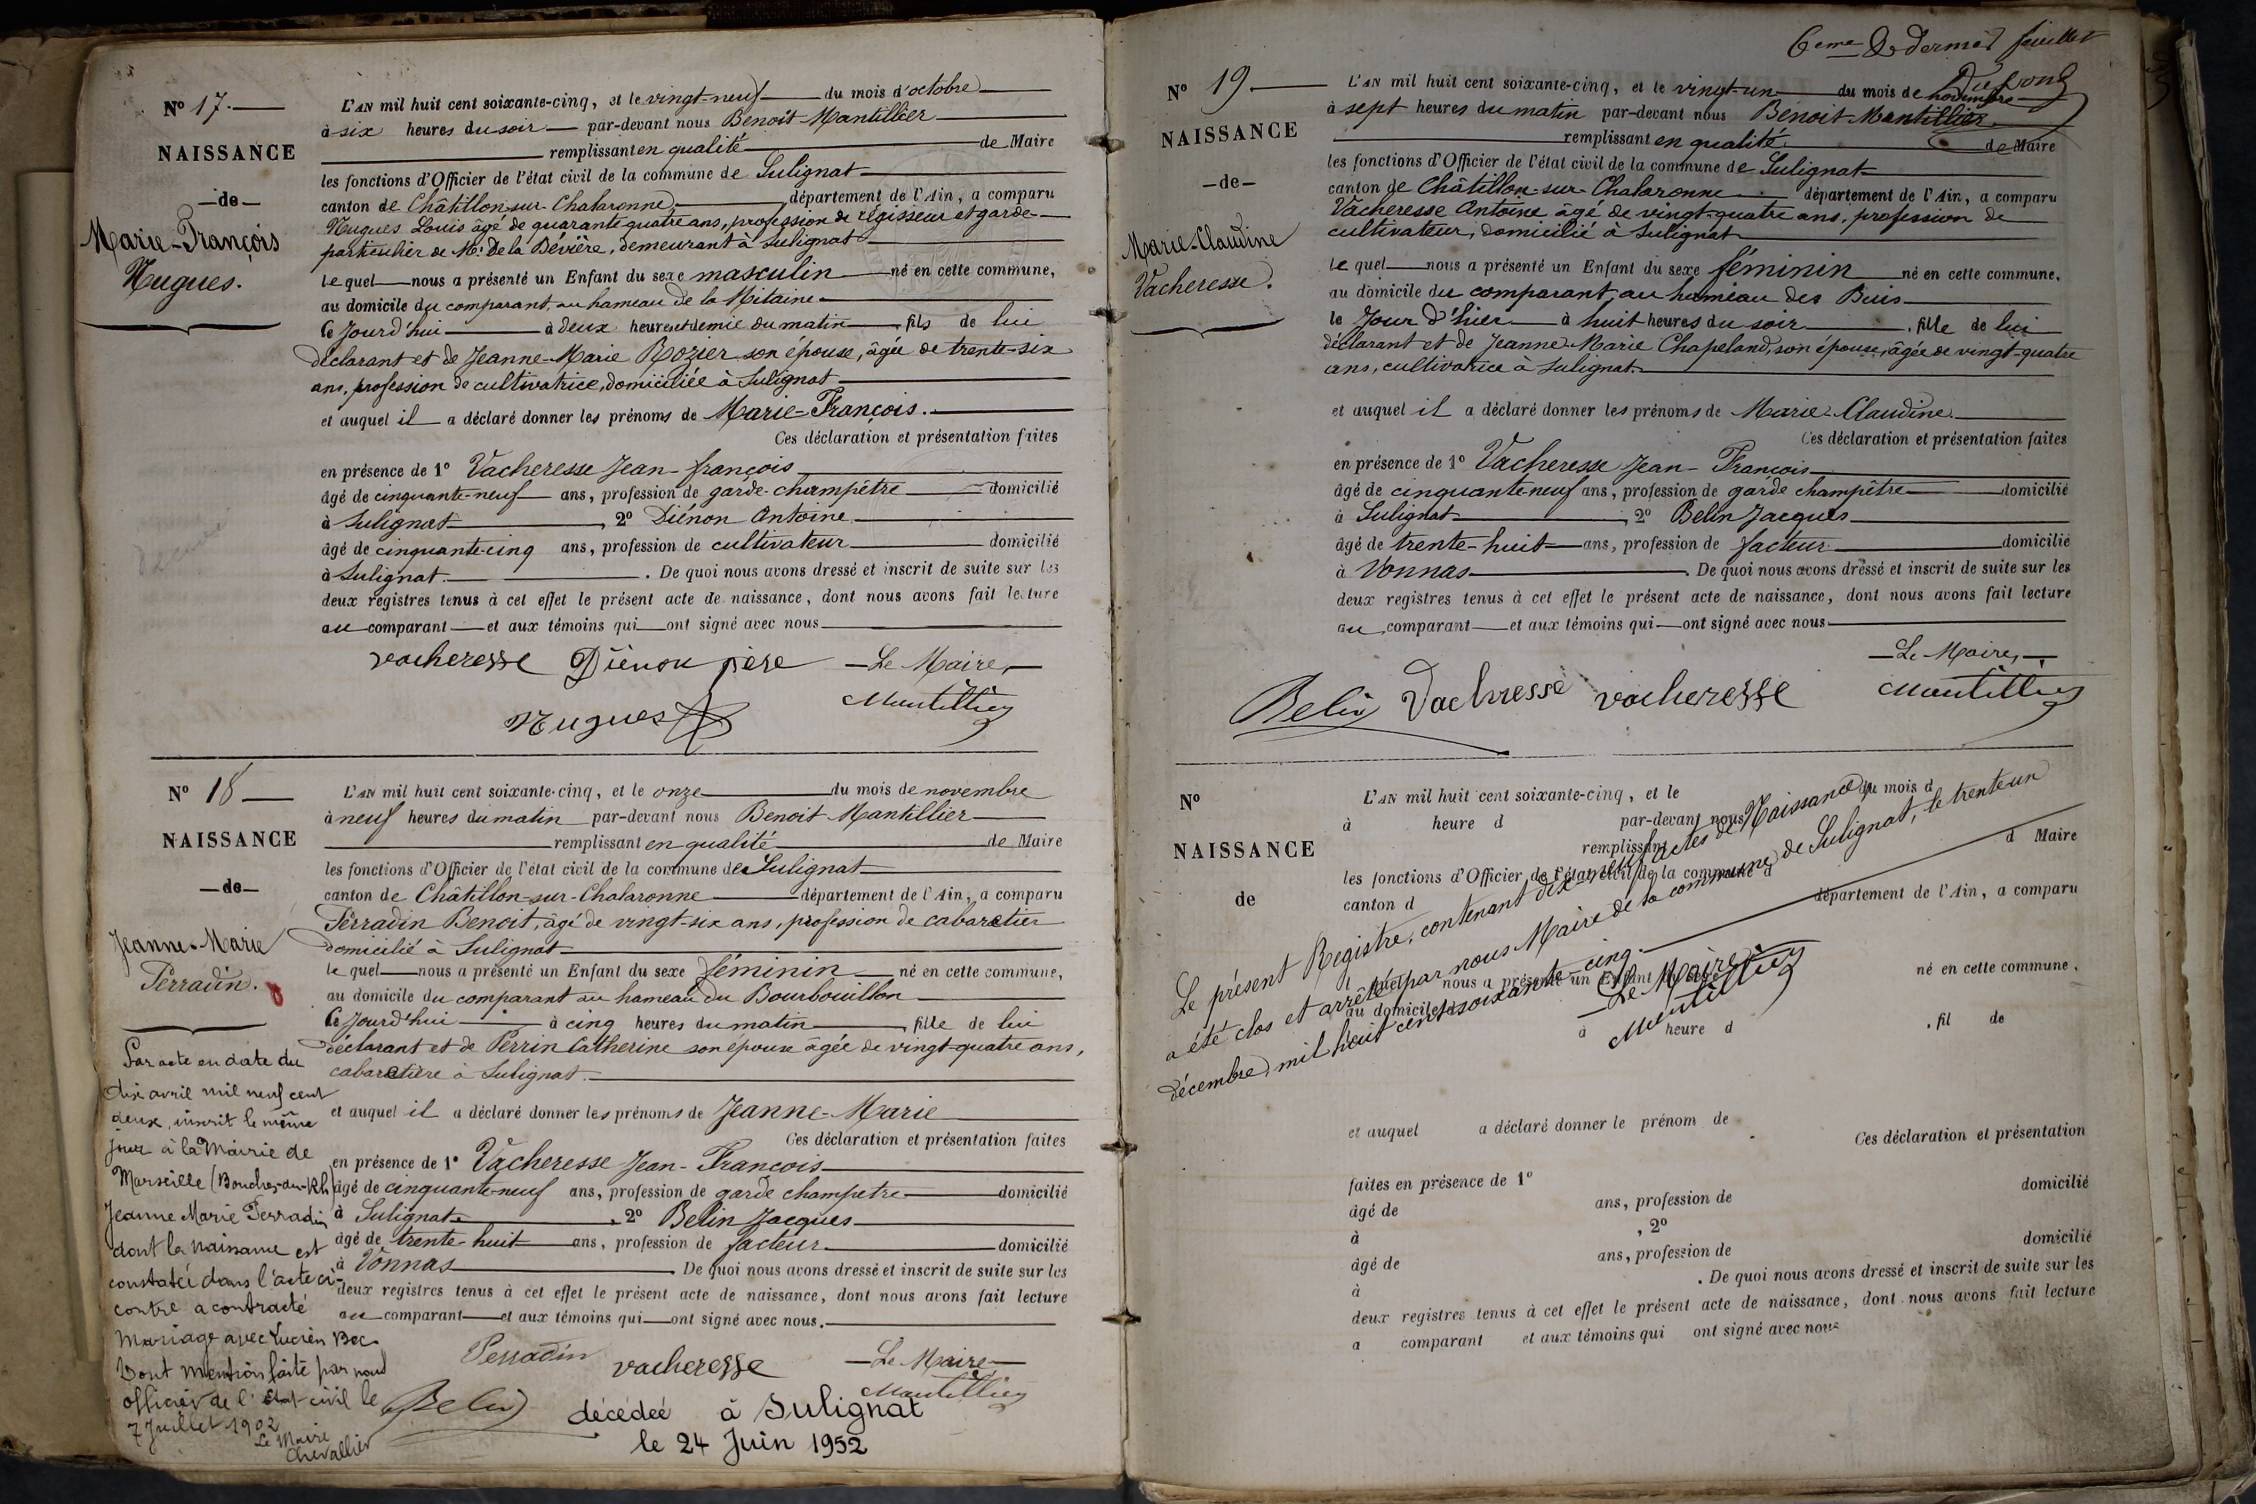 N° 17.
NAISSANCE
de
Marie-François
Nugues.
L'AN mil huit cent soixante-cinq, et le vingt-neuf du mois d'octobre
à six heures du soir par-devant nous Benoit Mantillier
remplissant en qualité de Maire
les fonctions d'Officier de l'état civil de la commune de Sulignat
canton de Châtillon-sur-Chalaronne, département de l'Ain, a comparu
Nugues Louis âgé de quarante quatre ans, profession de régisseur et garde
particulier de Mr. De la Bévière, demeurant à Sulignat
lequel nous a présenté un Enfant du sexe masculin né en cette commune,
au domicile du comparant, au hameau de la Mitaine
ce jourd'hui à deux heures et demie du matin, fils de lui
déclarant et de Jeanne-Marie Rozier son épouse, âgée de trente-six
ans, profession de cultivatrice, domiciliée à Sulignat
et auquel il a déclaré donner les prénoms de Marie-François.
Ces déclaration et présentation faites
en présence de 1° Vacheresse Jean-françois
âgé de cinquante-neuf ans, profession de garde-champêtre domicilié
à Sulignat, 2° Diénon Antoine
âgé de cinquante-cinq ans, profession de cultivateur domicilié
à Sulignat. De quoi nous avons dressé et inscrit de suite sur les
deux registres tenus à cet effet le présent acte de naissance, dont nous avons fait lecture
au comparant et aux témoins qui ont signé avec nous
vacheresse Diénon père Le Maire,
Mantillier
Nugues
N° 18
NAISSANCE
de
Jeanne-Marie
Perradin.
L'AN mil huit cent soixante-cinq, et le onze du mois de novembre
à neuf heures du matin par-devant nous Benoit Mantillier
remplissant en qualité de Maire
les fonctions d'Officier de l'état civil de la commune de Sulignat
canton de Châtillon-sur-Chalaronne département de l'Ain, a comparu
Perradin Benoit, âgé de vingt-six ans, profession de cabaretier
domicilié à Sulignat
lequel nous a présenté un Enfant du sexe féminin né en cette commune,
au domicile du comparant au hameau du Bourbouillon
ce jourd'hui à cinq heures du matin, fille de lui
déclarant et de Perrin Catherine son épouse âgée de vingt-quatre ans,
cabaretière à Sulignat.
et auquel il a déclaré donner les prénoms de Jeanne-Marie
Ces déclaration et présentation faites
en présence de 1° Vacheresse Jean-François
âgé de cinquante-neuf ans, profession de garde champetre domicilié
à Sulignat. 2° Belin Jacques
âgé de trente-huit ans, profession de facteur domicilié
à Vonnas De quoi nous avons dressé et inscrit de suite sur les
deux registres tenus à cet effet le présent acte de naissance, dont nous avons fait lecture
au comparant et aux témoins qui ont signé avec nous.
Perradin vacheresse Le Maire
Mantillier
Belin
décédée à Sulignat
le 24 Juin 1952
Par acte en date du
dix avril mil neuf cent
deux, inscrit le même
jour à la Mairie de
Marseille (Bouches-du-Rh)
Jeanne Marie Perradin
dont la naissance est
constatée dans l'acte ci-
contre a contracté
mariage avec Lucien Bec.
Dont mention faite par nous
officier de l'Etat civil le
7 Juillet 1902
Le Maire
Chevallier
6eme & dernier feuillet
Dupond
N° 19.
NAISSANCE
de
Marie-Claudine
Vacheresse.
L'AN mil huit cent soixante-cinq, et le vingt-un du mois de novembre
à sept heures du matin par-devant nous Benoit Mantillier
remplissant en qualité de Maire
les fonctions d'Officier de l'état civil de la commune de Sulignat
canton de Châtillon-sur-Chalaronne département de l'Ain, a comparu
Vacheresse Antoine âgé de vingt-quatre ans, profession de
cultivateur, domicilié à Sulignat
lequel nous a présenté un Enfant du sexe féminin né en cette commune,
au domicile du comparant, au hameau des Buis
le jour d'hier à huit heures du soir, fille de lui
déclarant et de Jeanne-Marie Chapeland, son épouse, âgée de vingt-quatre
ans, cultivatrice à Sulignat
et auquel il a déclaré donner les prénoms de Marie-Claudine
Ces déclaration et présentation faites
en présence de 1° Vacheresse Jean-François
âgé de cinquante-neuf ans, profession de garde champêtre domicilié
à Sulignat, 2° Belin Jacques
âgé de trente-huit ans, profession de facteur domicilié
à Vonnas. De quoi nous avons dressé et inscrit de suite sur les
deux registres tenus à cet effet le présent acte de naissance, dont nous avons fait lecture
au comparant et aux témoins qui ont signé avec nous
Le Maire,
Belin Vacheresse vacheresse Mantillier
N°
NAISSANCE
de
L'AN mil huit cent soixante-cinq, et le du mois d
à heure d par-devant nous
remplissant d Maire
les fonctions d'Officier de l'état civil de la commune d
canton d département de l'Ain, a comparu
Le présent Registre, contenant dix-neuf actes de Naissance,
a été clos et arrêté par nous Maire de la commune de Sulignat, le trente un
décembre mil huit cent soixante-cinq.
Le Maire
Mantillier
l quel nous a présenté un Enfant du sexe né en cette commune,
au domicile d
à heure d , fil de
et auquel a déclaré donner le prénom de
Ces déclaration et présentation
faites en présence de 1°
âgé de ans, profession de domicilié
à , 2°
âgé de ans, profession de domicilié
à . De quoi nous avons dressé et inscrit de suite sur les
deux registres tenus à cet effet le présent acte de naissance, dont nous avons fait lecture
a comparant et aux témoins qui ont signé avec nous